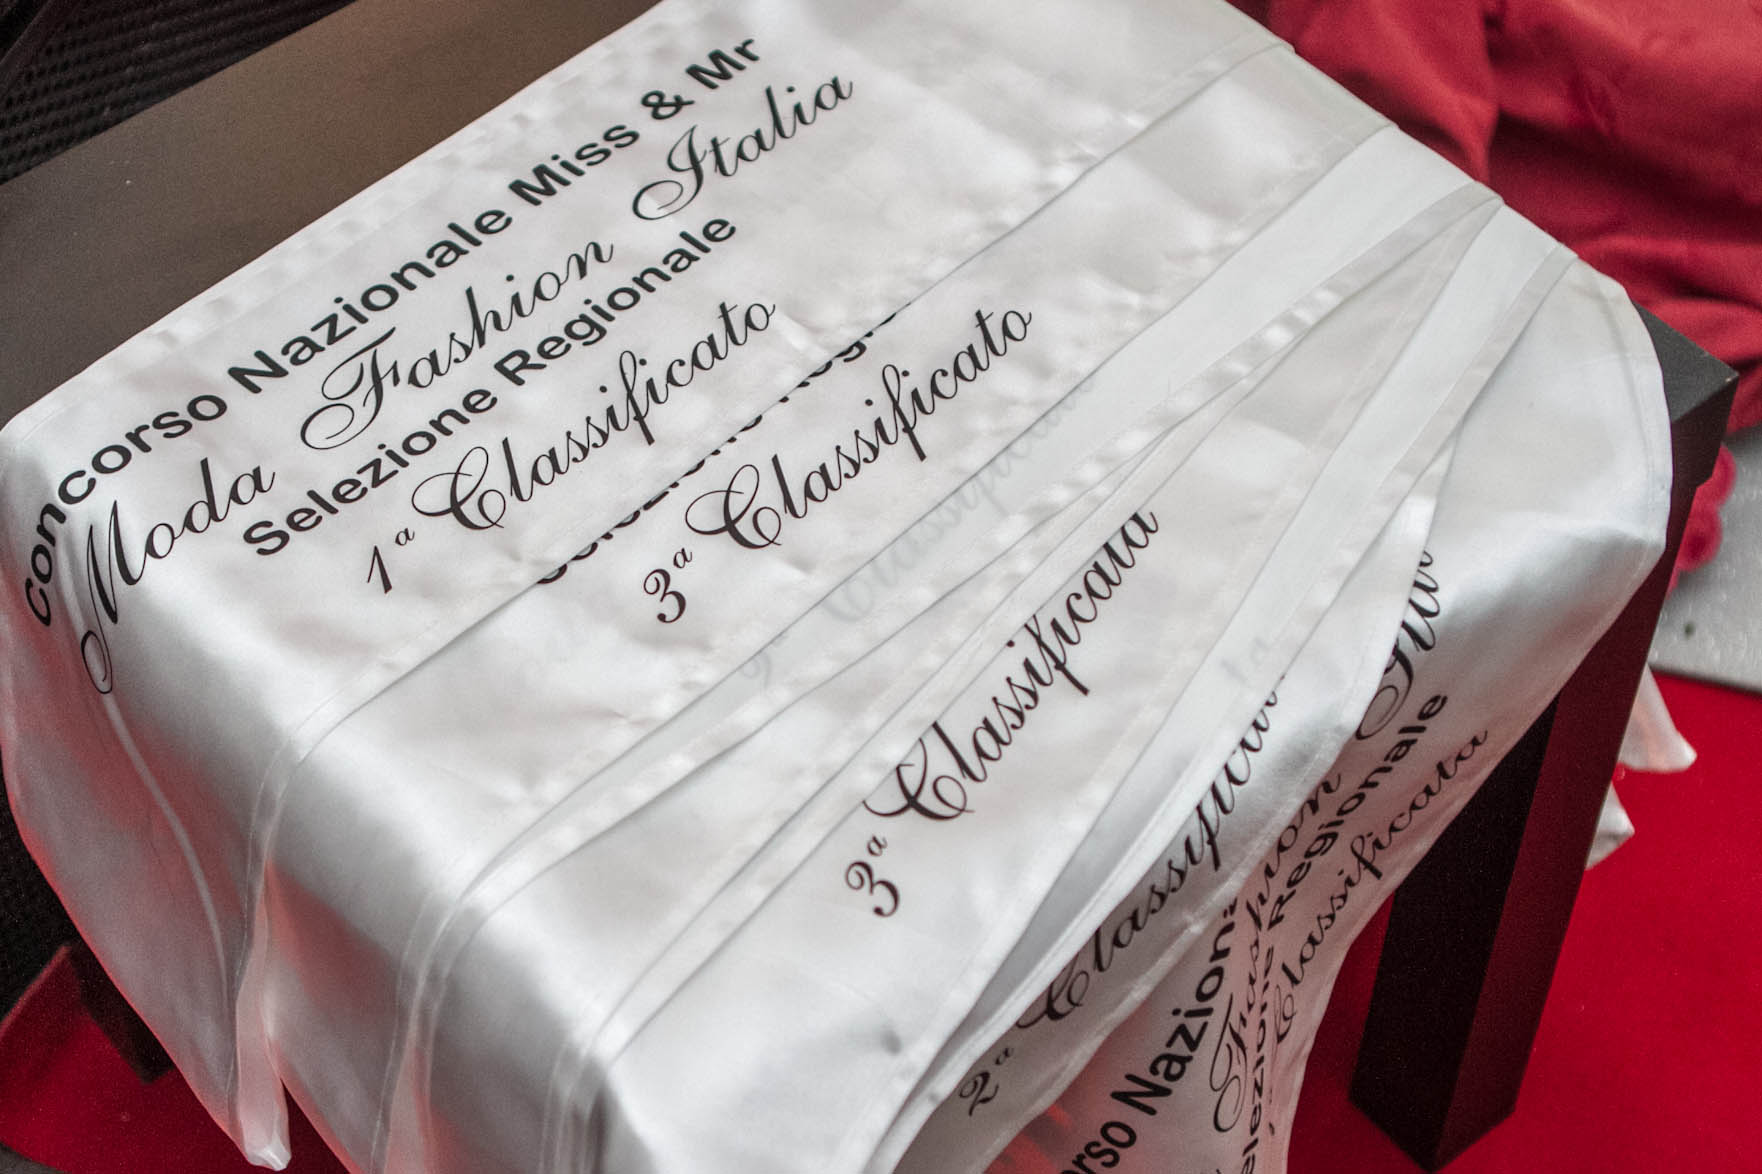 Concorso Nazionale Miss & Mr
Moda Fashion Italia
Selezione Regionale
1ª Classificato
Selezione Regio
3ª Classificato
3ª Classificata
2ª Classificata
Nazion
Fashion
Selezione Regionale
Classificata